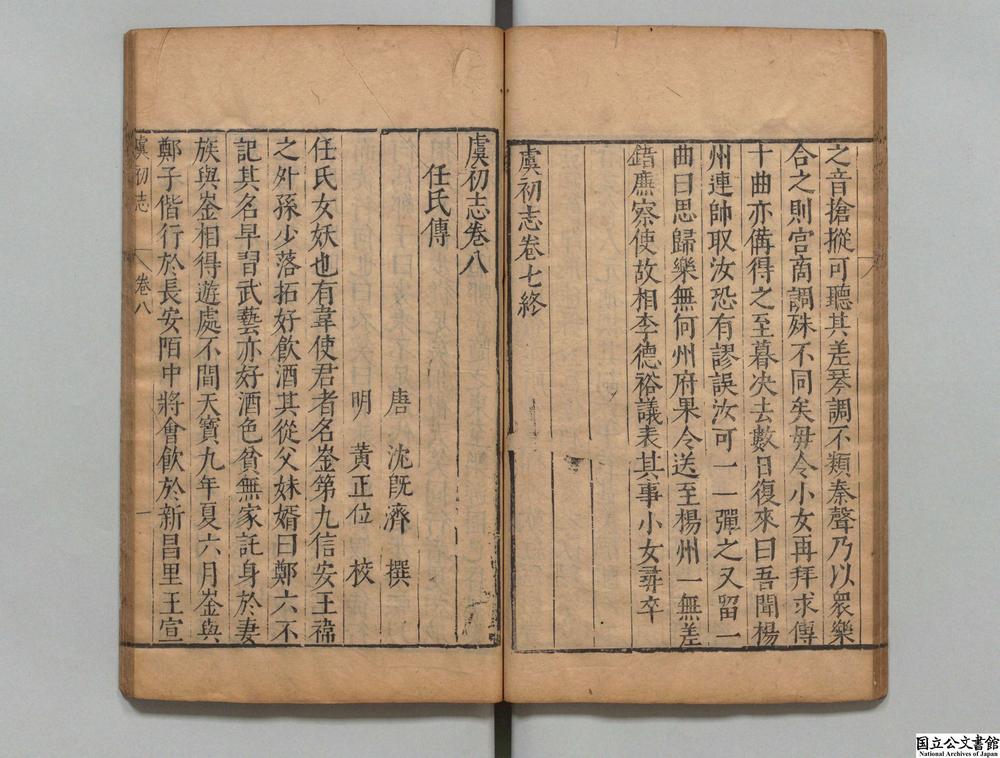 之音搶摐可聽其差琴調不類秦聲乃以衆樂
合之則宫商調殊不同矣毋令小女再拜求傳
十曲亦備得之至暮决去數日復來曰吾聞楊
州連帥取汝恐有謬誤汝可一一彈之又留一
曲曰思歸樂無何州府果令送至楊州一無差
錯廉察使故相李德裕議表其事小女尋卒
虞初志卷七終
虞初志卷八
任氏傳
唐 沈旣濟 撰
明 黃正位 校
任氏女妖也有韋使君者名崟第九信安王禕
之外孫少落拓好飲酒其從父妹婿曰鄭六不
記其名早習武藝亦好酒色貧無家託身於妻
族與崟相得遊處不間天寶九年夏六月崟與
鄭子偕行於長安陌中將會飲於新昌里王宣
虞初志 卷八 一
国立公文書館
National Archives of Japan